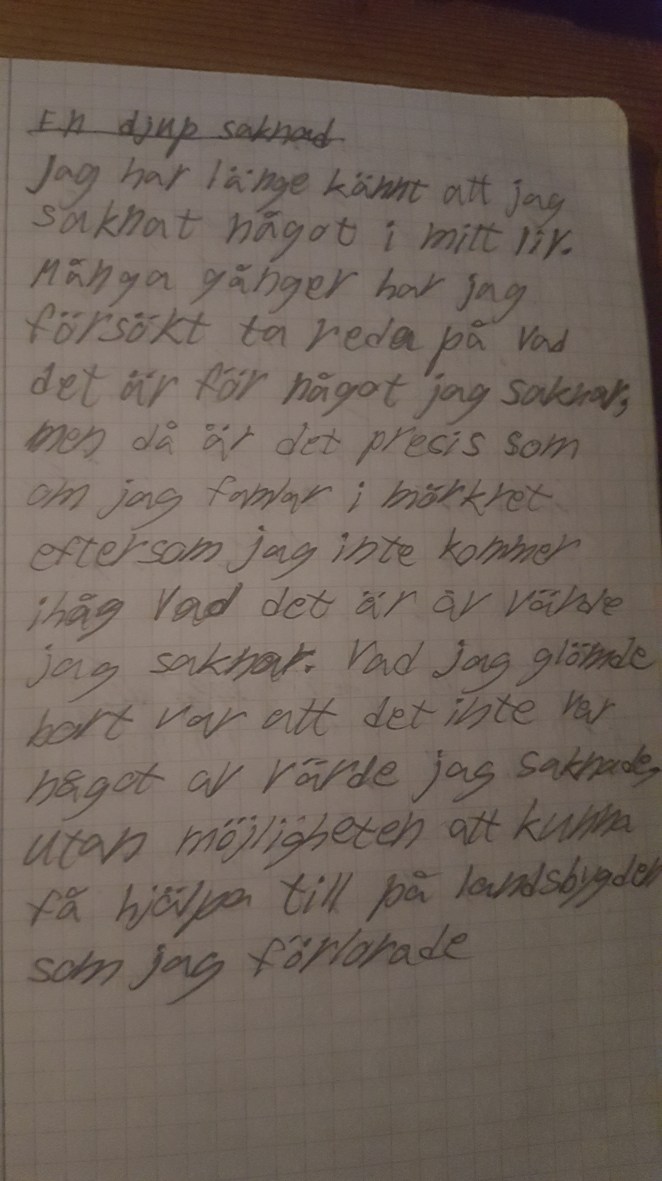 En djup saknad
Jag har länge kännt att jag
saknat något i mitt liv.
Många gånger har jag
försökt ta reda på vad
det är för något jag saknar,
men då är det precis som
om jag famlar i mörkret
eftersom jag inte kommer
ihåg vad det är av värde
jag saknar. Vad jag glömde
bort var att det inte var
något av värde jag saknade,
utan möjligheten att kunna
få hjälpa till på landsbygden
som jag förlorade